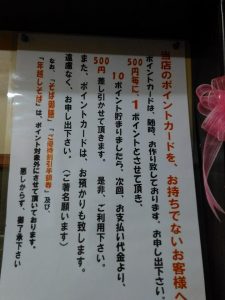 当店のポイントカードを、お持ちでないお客様へ
ポイントカードは、随時、お作り致しております。お申し出下さい。
500円毎に、1ポイントとさせて頂き、
10ポイント貯まりましたら、次回、お支払い代金より、
500円 差し引かせて頂きます。 是非、ご利用下さい。
また、ポイントカードは、お預かりも致します。
遠慮なく、お申し出下さい。（ご署名願います）
なお、「そば御膳」、「ご優待割引手鎖券」及び、
「年越しそば」は、ポイント対象外にさせて頂いております。
悪しからず、御了承下さい